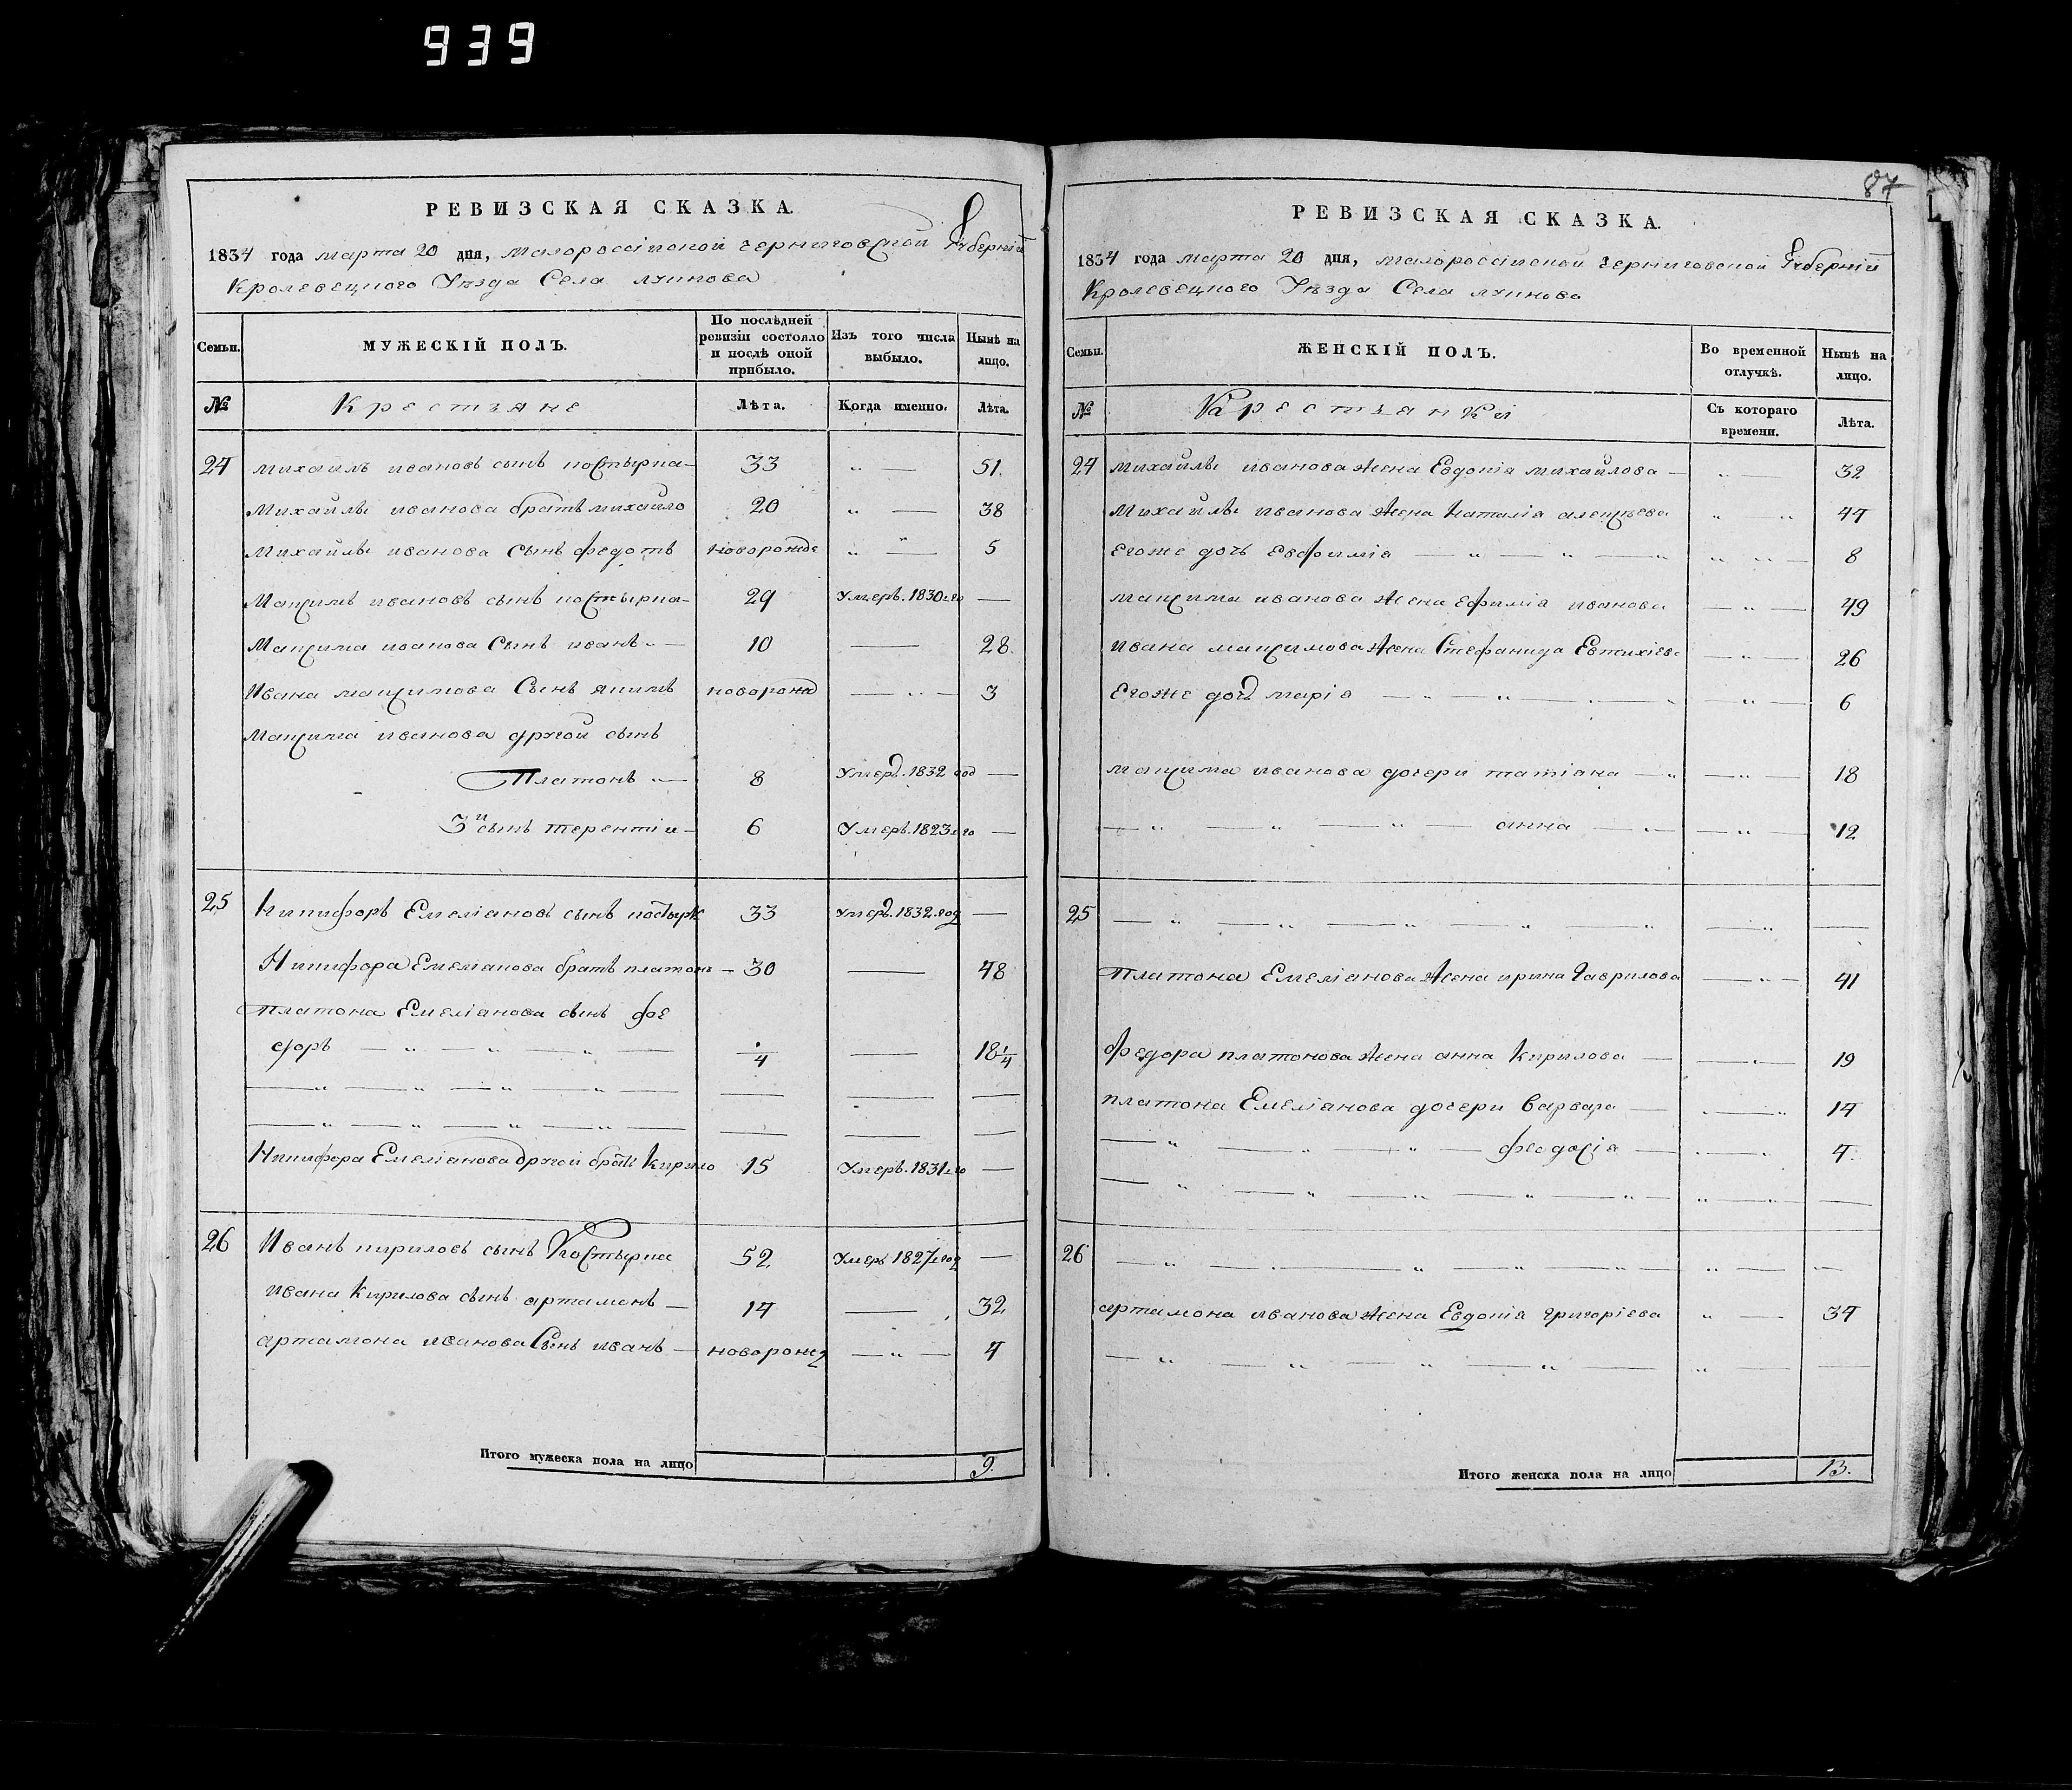 939
РЕВИЗСКАЯ СКАЗКА.
1834 года марта 20 дня, малороссійской черниговской Губерніи
Кролевецкого Уѣзда Села лукнова
Семьи.
МУЖЕСКІЙ ПОЛЪ.
По послѣдней ревизіи состояло и послѣ оной прибыло.
Изъ того числа выбыло.
Нынѣ на лицо.
№
Крестьяне
Лѣта.
Когда именно.
Лѣта.
24 михаилъ ивановъ сынъ костырка 33 „ — 51.
Михайлы иванова братъ михайло 20 „ — 38
Михайлы иванова сынъ федотъ новорожде „ „ — 5
Максимъ ивановъ сынъ костырка 29 Умеръ. 1830 го —
Максима иванова Сынъ иванъ „ — 10 — 28.
Ивана максимова Сынъ якимъ новорожд — „ — 3
Максима иванова другой сынъ
Платонъ „ — 8 Умеръ. 1832 год —
3й сынъ терентіи — 6 Умеръ. 1823 го —
25 Никифоръ Емеліановъ сынъ костырк 33 Умеръ. 1832. год —
Никифора Емеліанова братъ платонъ — 30 — 48
Платона Емеліанова сынъ фе
доръ — „ „ — „ — 1/4 — 18 1/4
— „ — „ — „ — „ — — — —
— „ — „ — „ — „ — — — —
Никифора Емеліанова другой братъ Кирило 15 Умеръ. 1831 го —
26 Иванъ кириловъ сынъ Костырка 52 Умеръ 1827 год —
Ивана Кирилова сынъ артамонъ — 14 — 32
артамона иванова Сынъ иванъ — новорожд — „ — 4
Итого мужеска пола на лицо 9.
87
РЕВИЗСКАЯ СКАЗКА.
1834 года марта 20 дня, малороссійской черниговской Губерніи
Кролевецкого Уѣзда Села лукнова
Семьи.
ЖЕНСКІЙ ПОЛЪ.
Во временной отлучкѣ.
Нынѣ на лицо.
№
Крестьянки
Съ котораго времени.
Лѣта.
24 михайлы иванова жена Евдокія михайлова — „ — 32
Михайлы иванова жена Наталія алексѣева „ „ 44
Егоже дочь Евфимія — „ — „ — „ „ „ — 8
максима иванова жена ефимія иванова — „ — 49
Ивана максимова жена Стефанида Евтихіева — „ — 26
Егоже дочь марія — „ — „ — „ — „ — „ — 6
максима иванова дочери татіана — „ — „ — 18
— „ — „ — „ — анна — „ — „ — 12
25 — „ — „ — „ — „ — „ — „ — —
Платона Емеліанова жена ирина Гаврилова — „ — 41
Федора платонова жена анна Кирилова — — „ — 19
платона Емеліанова дочери варвара — „ — „ 14
— „ — „ — „ — феодосія — „ — „ 4.
— „ — „ — „ — „ — „ — „ — „ —
26 — „ — „ — „ — „ — „ — „ „ — —
артамона иванова жена Евдокія григоріева „ — 34
— „ — „ — „ — „ — „ — —
Итого женска пола на лицо 13.